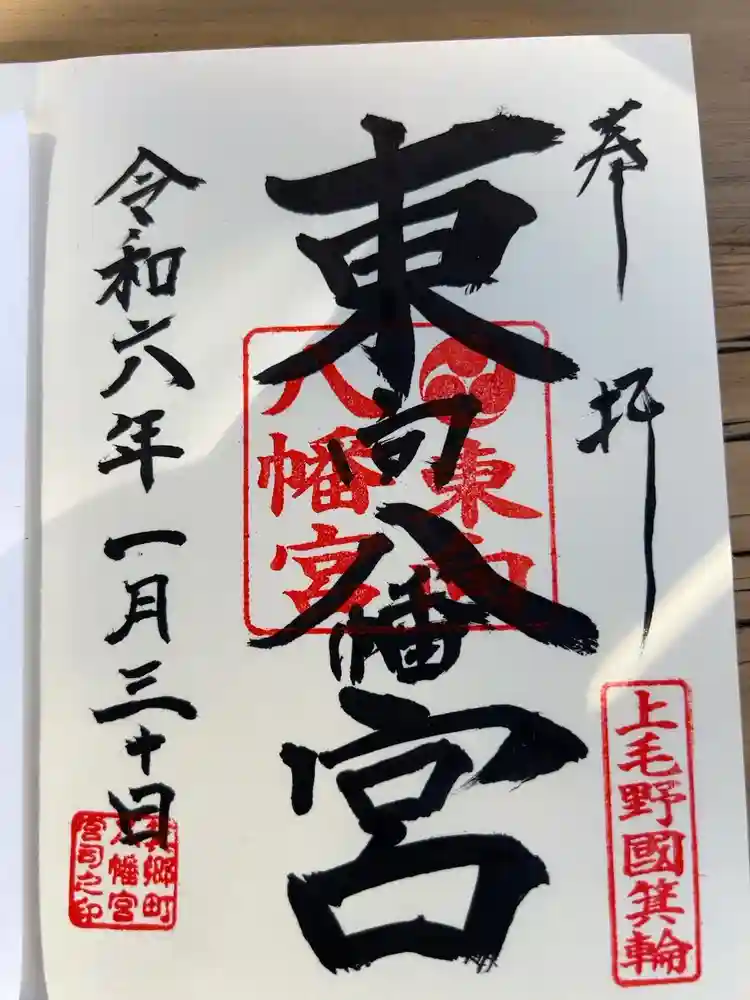 奉拝
上毛野國箕輪
東向八幡宮
東向
八幡宮
令和六年一月三十日
郷町
八幡宮
宮司之印